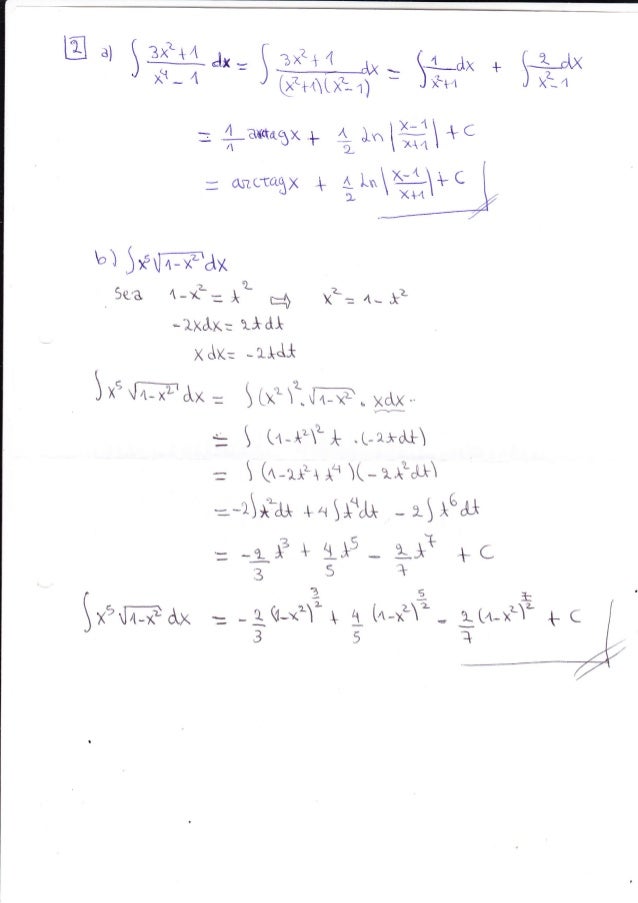 2 a) ∫ (3x²+1)/(x⁴-1) dx = ∫ (3x²+1)/((x²+1)(x²-1)) dx = ∫ 1/(x²+1) dx + ∫ 2/(x²-1) dx
= 1/1 arctagx + 1/2 Ln|(x-1)/(x+1)| + C
= arctagx + 1/2 Ln|(x-1)/(x+1)| + C
b) ∫x⁵√(1-x²) dx
Sea 1-x² = t² ⇒ x² = 1-t²
-2xdx = 2tdt
xdx = -2tdt
∫x⁵ √(1-x²) dx = ∫(x²)².√(1-x²) . xdx..
= ∫ (1-t²)² t .(-2tdt)
= ∫(1-2t²+t⁴)(-2t²dt)
= -2∫t²dt + 4∫t⁴dt - 2∫t⁶dt
= -2/3 t³ + 4/5 t⁵ - 2/7 t⁷ + C
∫x⁵ √(1-x²) dx = -2/3 (1-x²)^(3/2) + 4/5 (1-x²)^(5/2) - 2/7 (1-x²)^(7/2) + C